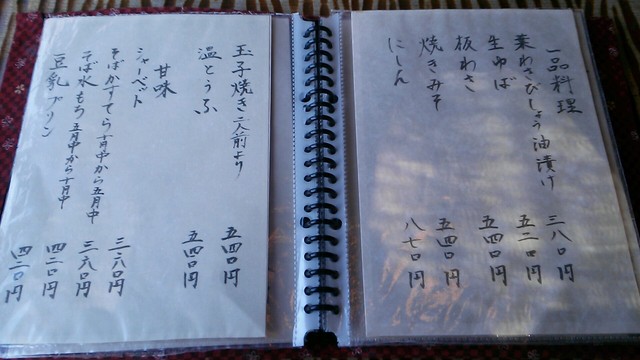 一品料理
葉わさびしょう油漬け 三八〇円
生ゆば 五二〇円
板わさ 五四〇円
焼きみそ 五四〇円
にしん 八七〇円
玉子焼き 二人前より 五四〇円
温とうふ 五四〇円
甘味
シャーベット 三六〇円
そばかすてら 十月中から五月中 三六〇円
そば水もち 五月中から十月中 四二〇円
豆乳プリン 四二〇円